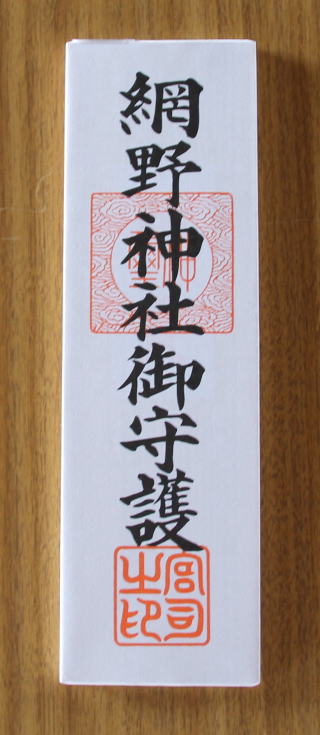 網野神社御守護
宮司之印